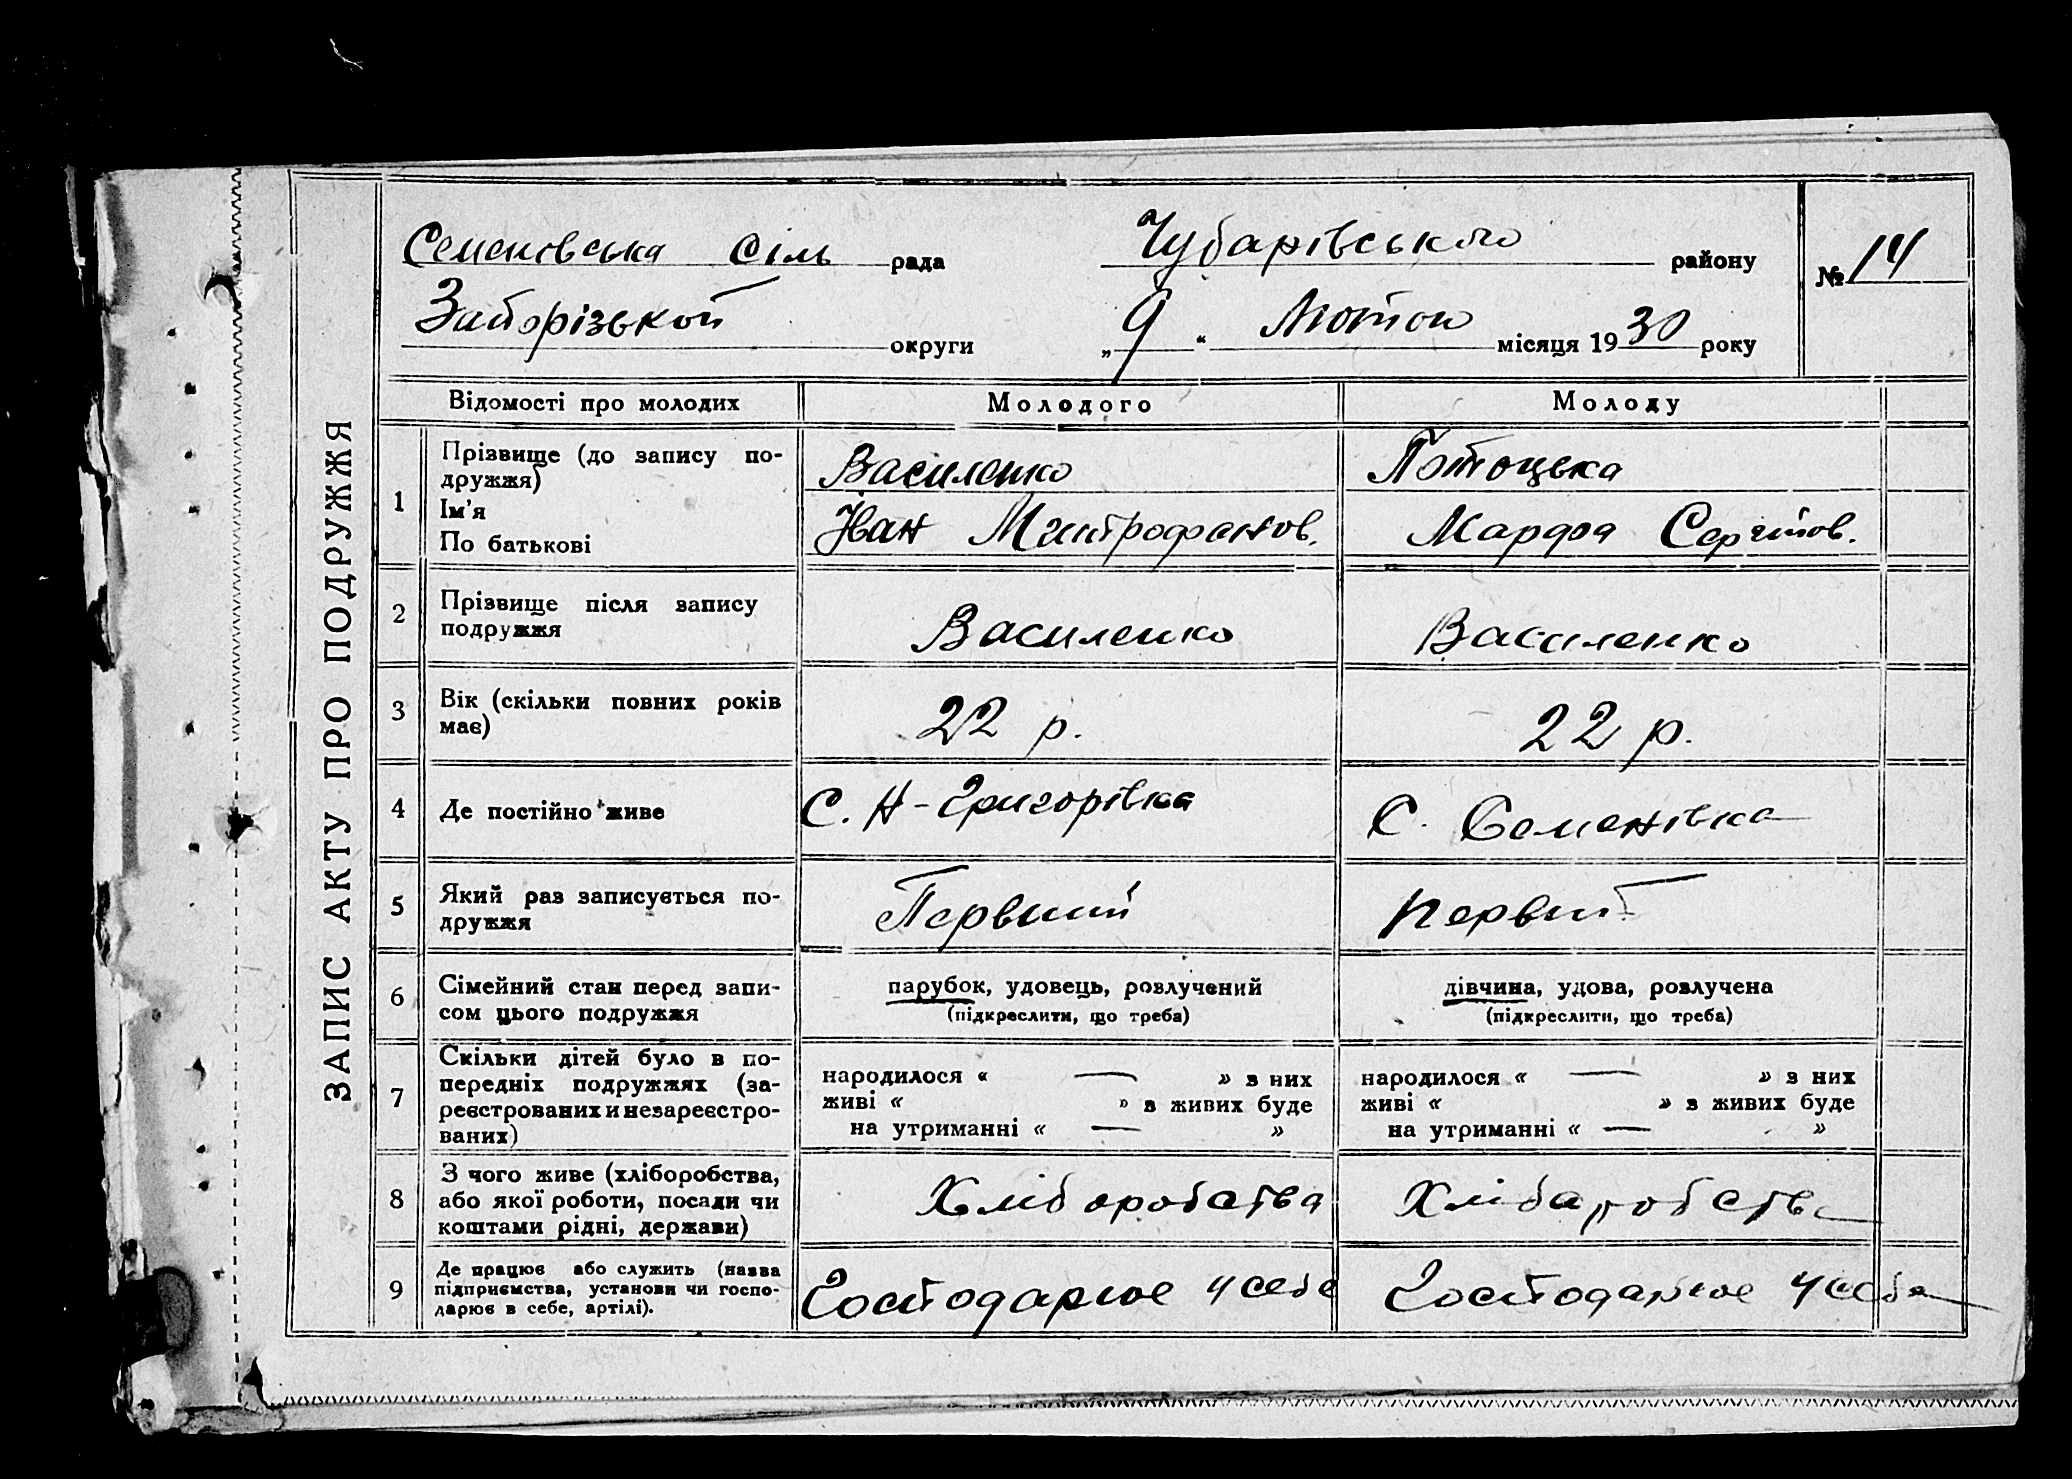 ЗАПИС АКТУ ПРО ПОДРУЖЖЯ
Семенівська сіль рада Чубарівського району № 14
Запорізькой округи „ 9 “ Лютого місяця 1930 року
Відомості про молодих Молодого Молоду
1 Прізвище (до запису по-
дружжя) Василенко Потоцька
Ім'я
По батькові Іван Митрофанов. Марфа Сергійов.
2 Прізвище після запису
подружжя Василенко Василенко
3 Вік (скільки повних років
має) 22 р. 22 р.
4 Де постійно живе С. Н-Григорівка С. Семенівка
5 Який раз записується по-
дружжя Первий Первий
6 Сімейний стан перед запи-
сом цього подружжя
парубок, удовець, розлучений дівчина, удова, розлучена
(підкреслити, що треба) (підкреслити, що треба)
7 Скільки дітей було в по-
передніх подружжях (за-
реєстрованих и незареєстро-
ваних)
народилося « — » з них народилося « — » з них
живі « » з живих буде живі « » з живих буде
на утриманні « — » на утриманні « — »
8 З чого живе (хліборобства,
або якої роботи, посади чи
коштами рідні, держави)
Хліборобства Хлібаробства
9 Де працює або служить (назва
підприємства, установи чи госпо-
дарює в себе, артілі).
Господарює у себе Господарює у себе